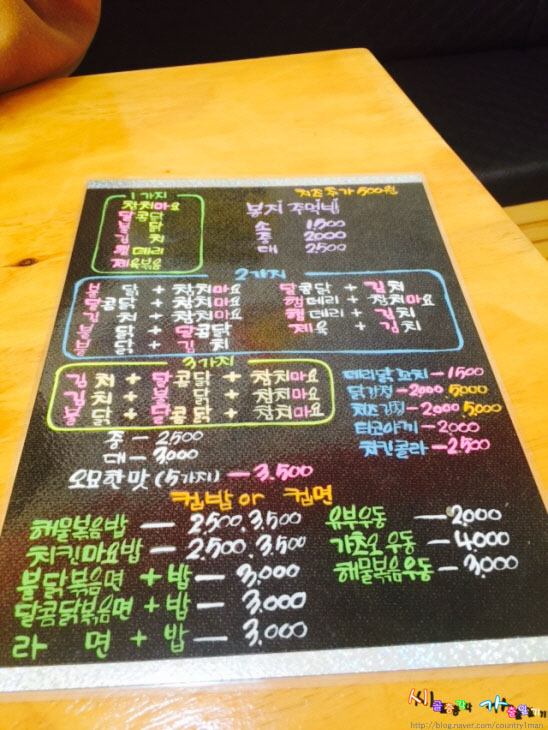 1가지
참치마요
달콩닭
불닭
김치
햄데리
제육볶음
치즈추가 500원
봉지 주먹밥
소 1500
중 2000
대 2500
2가지
불닭 + 참치마요
달콩닭 + 참치마요
김치 + 참치마요
불닭 + 달콤닭
불닭 + 김치
달콩닭 + 김치
햄데리 + 참치마요
햄데리 + 김치
제육 + 김치
3가지
김치 + 달콩닭 + 참치마요
김치 + 불닭 + 참치마요
불닭 + 달콩닭 + 참치마요
중 - 2,500
대 - 3,000
오묘한맛 (5가지) - 3,500
데리닭꼬치 - 1500
닭강정 - 2000 5000
치즈강정 - 2000 5000
타코야끼 - 2000
치킨콜라 - 2,500
컵밥 or 컵면
해물볶음밥 - 2500, 3,500
치킨마요밥 - 2,500, 3,500
불닭볶음면 + 밥 - 3,000
달콤닭볶음면 + 밥 - 3,000
라면 + 밥 - 3,000
유부우동 - 2,000
가쓰오 우동 - 4,000
해물볶음우동 - 3,000
http://blog.naver.com/country1man